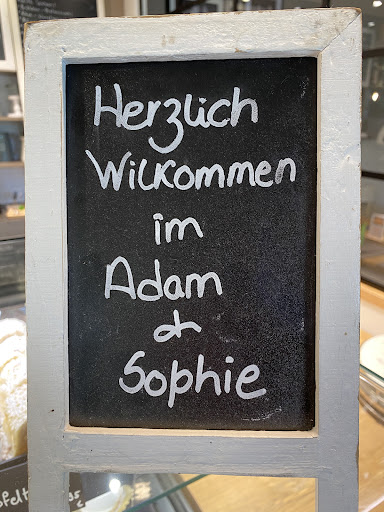 Herzlich
Willkommen
im
Adam
&
Sophie